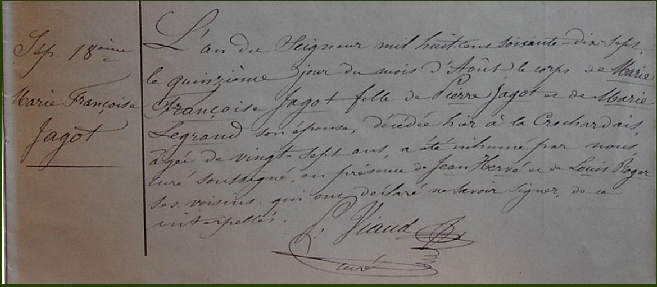 Sép. 18ème
Marie Françoise
Jagot
L'an du Seigneur mil huit cent soixante-dix sept,
le quinzième jour du mois d'Août le corps de Marie
Françoise Jagot fille de Pierre Jagot et de Marie
Legrand son épouse, décédée hier à la Crochardais,
âgée de vingt-sept ans, a été inhumé par nous,
curé soussigné, en présence de Jean Hervé et de Louis Roger
ses voisins qui ont déclaré ne savoir signer, de ce
interpellés.
Viaud
curé